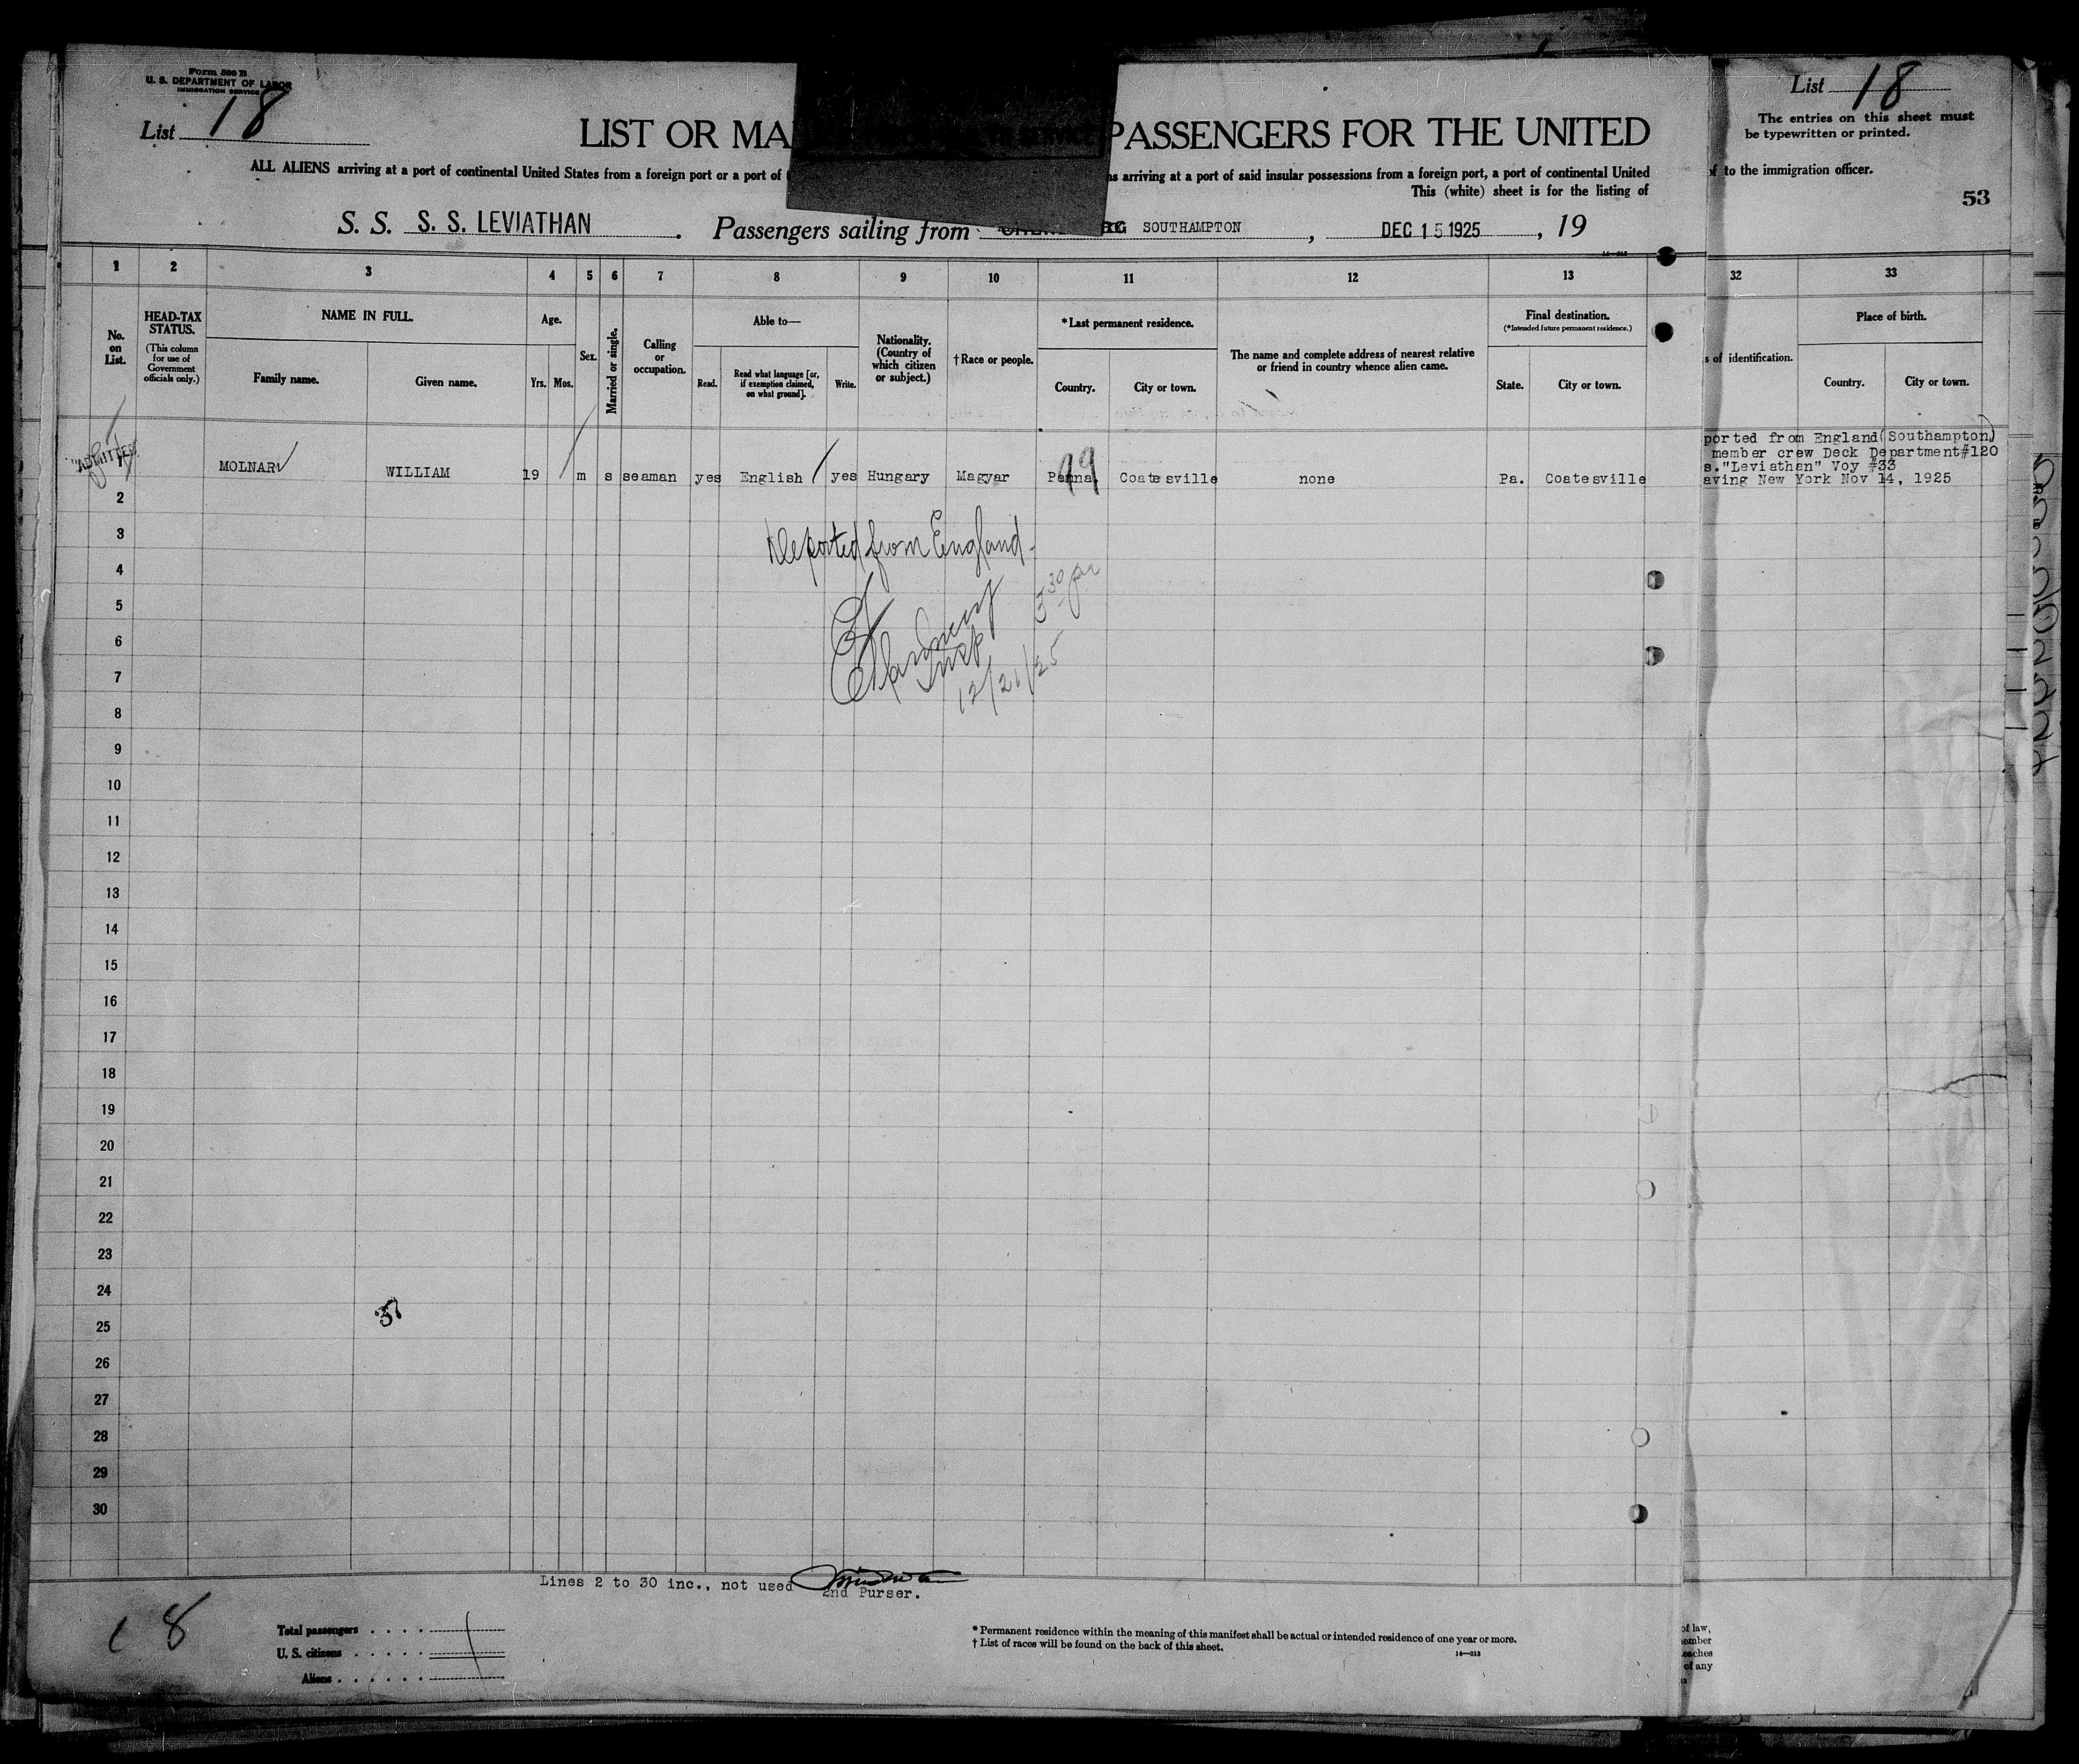 Form 500 B
U. S. DEPARTMENT OF LABOR
IMMIGRATION SERVICE
List 18
LIST OR MA PASSENGERS FOR THE UNITED
ALL ALIENS arriving at a port of continental United States from a foreign port or a port of arriving at a port of said insular possessions from a foreign port, a port of continental United
This (white) sheet is for the listing of
S. S. S. S. LEVIATHAN . Passengers sailing from SOUTHAMPTON , DEC 15 1925 , 19
List 18
The entries on this sheet must
be typewritten or printed.
to the immigration officer.
53
1 2 3 4 5 6 7 8 9 10 11 12 13 32 33
No. on List.
HEAD-TAX STATUS.
(This column for use of Government officials only.)
NAME IN FULL.
Family name. Given name.
Age.
Yrs. Mos.
Sex.
Married or single.
Calling or occupation.
Able to—
Read. Read what language [or, if exemption claimed, on what ground]. Write.
Nationality. (Country of which citizen or subject.)
†Race or people.
*Last permanent residence.
Country. City or town.
The name and complete address of nearest relative or friend in country whence alien came.
Final destination.
(*Intended future permanent residence.)
State. City or town.
s of identification.
Place of birth.
Country. City or town.
"ADMITTED"
MOLNAR WILLIAM 19 m s seaman yes English yes Hungary Magyar Penna. Coatesville none Pa. Coatesville
99
ported from England(Southampton)
member crew Deck Department#120
s."Leviathan" Voy #33
aving New York Nov 14, 1925
Deported from England.
3 30 pm
Insp
12/21/25
2
3
4
5
6
7
8
9
10
11
12
13
14
15
16
17
18
19
20
21
22
23
24
25
26
27
28
29
30
Lines 2 to 30 inc., not used
2nd Purser.
18
Total passengers
U. S. citizens
Aliens
* Permanent residence within the meaning of this manifest shall be actual or intended residence of one year or more.
† List of races will be found on the back of this sheet.
14—213
of law,
of any